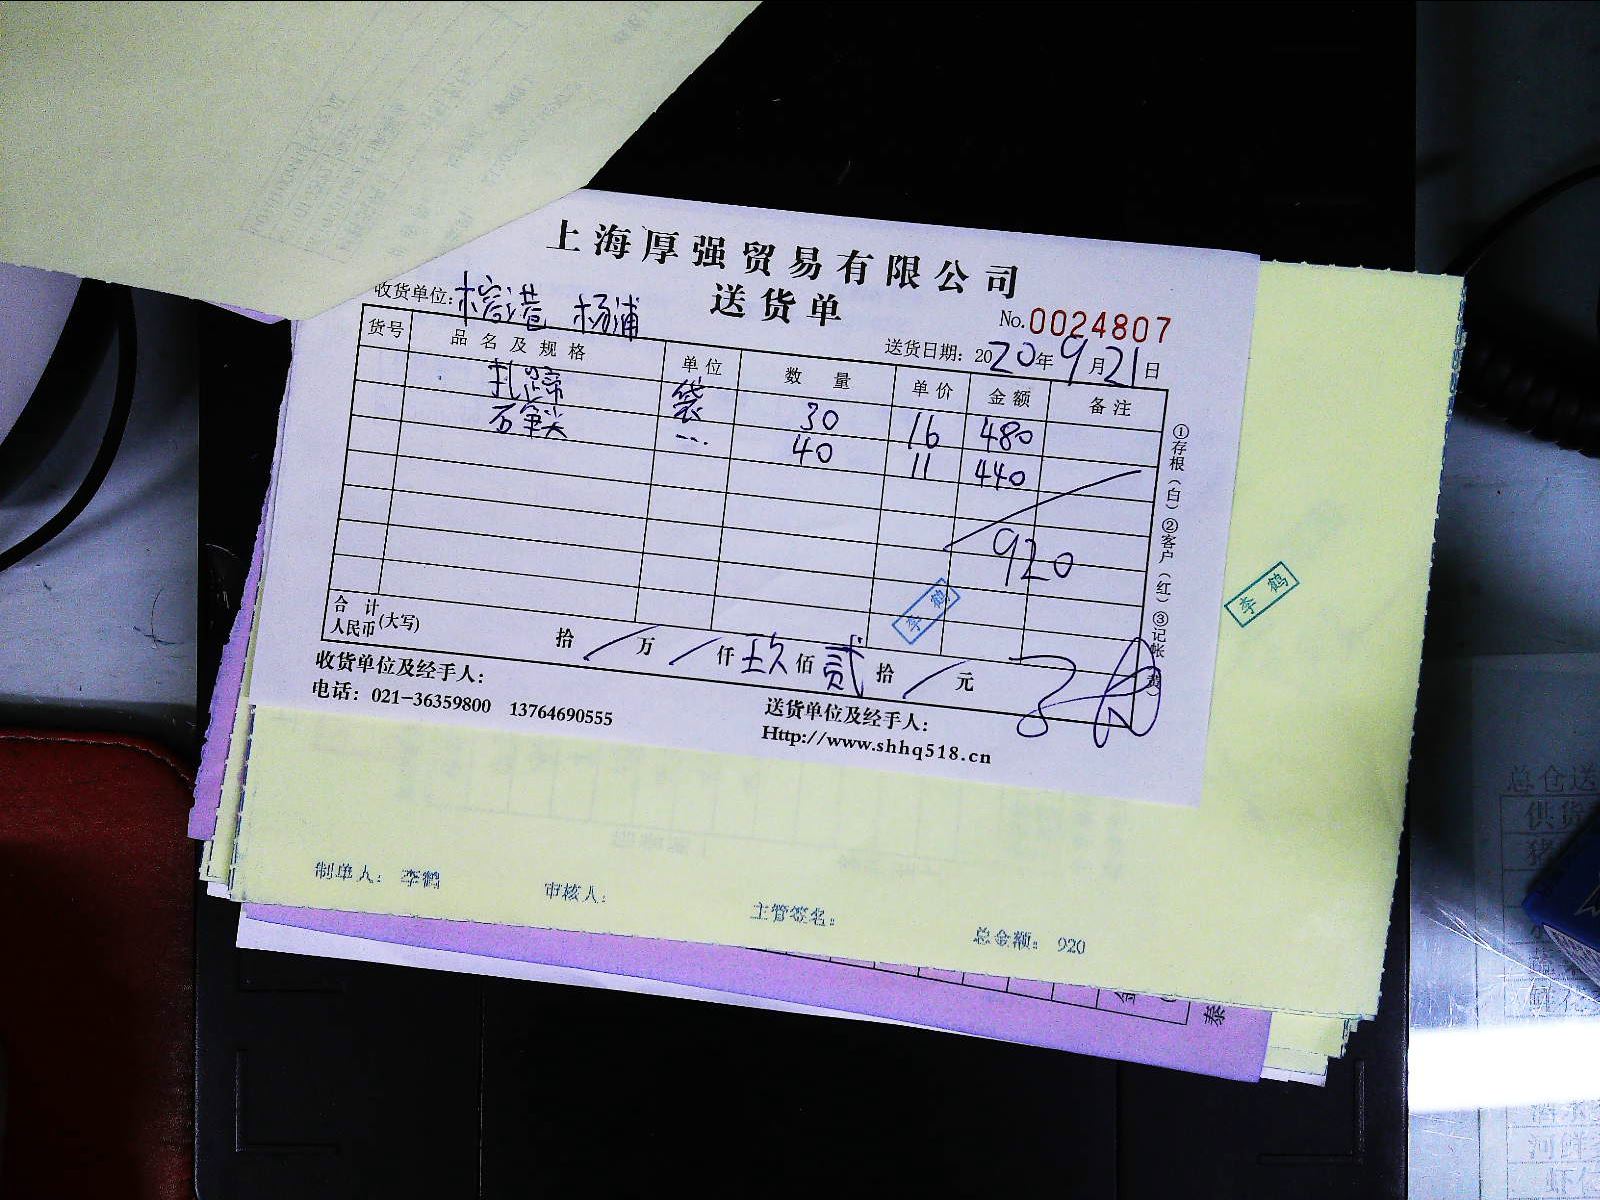 上海厚强贸易有限公司
送货单
No.0024807
收货单位：榕港 杨浦
送货日期：2020年9月21日
货号 品名及规格 单位 数量 单价 金额 备注
扎蹄 袋 30 16 480
石笔尖 〃 40 11 440
920
①存根（白）②客户（红）③记帐（黄）
李鹤
李鹤
合计人民币(大写) 拾/万/仟玖佰贰拾/元
收货单位及经手人：
电话：021-36359800 13764690555
送货单位及经手人：
Http://www.shhq518.cn
制单人：李鹤 审核人： 主管签名： 总金额：920
总仓送
供货
猪
河鲜
虾仁
泰